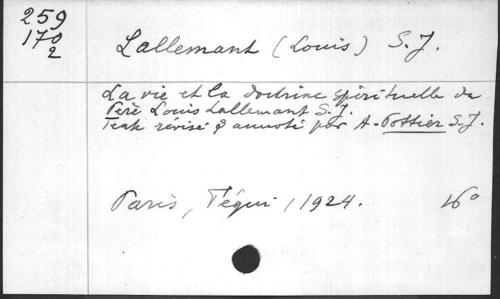 259
170
2
Lallemant (Louis) S.J.
La vie et la doctrine spirituelle du
Père Louis Lallemant S.J.
Texte révisé & annoté par A. Pottier S.J.
Paris, Téqui, 1924. 16°